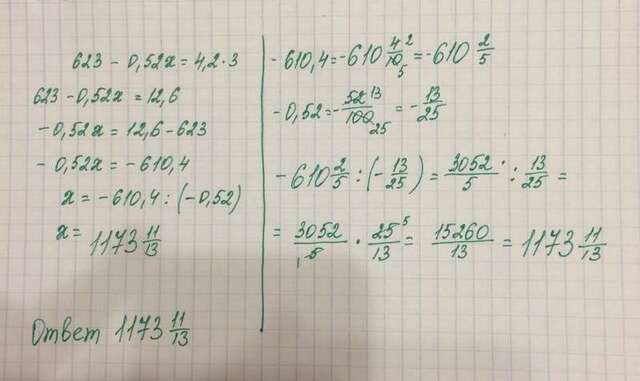 623 - 0,52x = 4,2 · 3
623 - 0,52x = 12,6
- 0,52x = 12,6 - 623
- 0,52x = - 610,4
x = - 610,4 : (- 0,52)
x = 1173 11/13
Ответ 1173 11/13
- 610,4 = - 610 4/10 2 5 = - 610 2/5
- 0,52 = - 52/100 13 25 = - 13/25
- 610 2/5 : (- 13/25) = 3052/5 : 13/25 =
= 3052/5 1 · 25/13 5 = 15260/13 = 1173 11/13